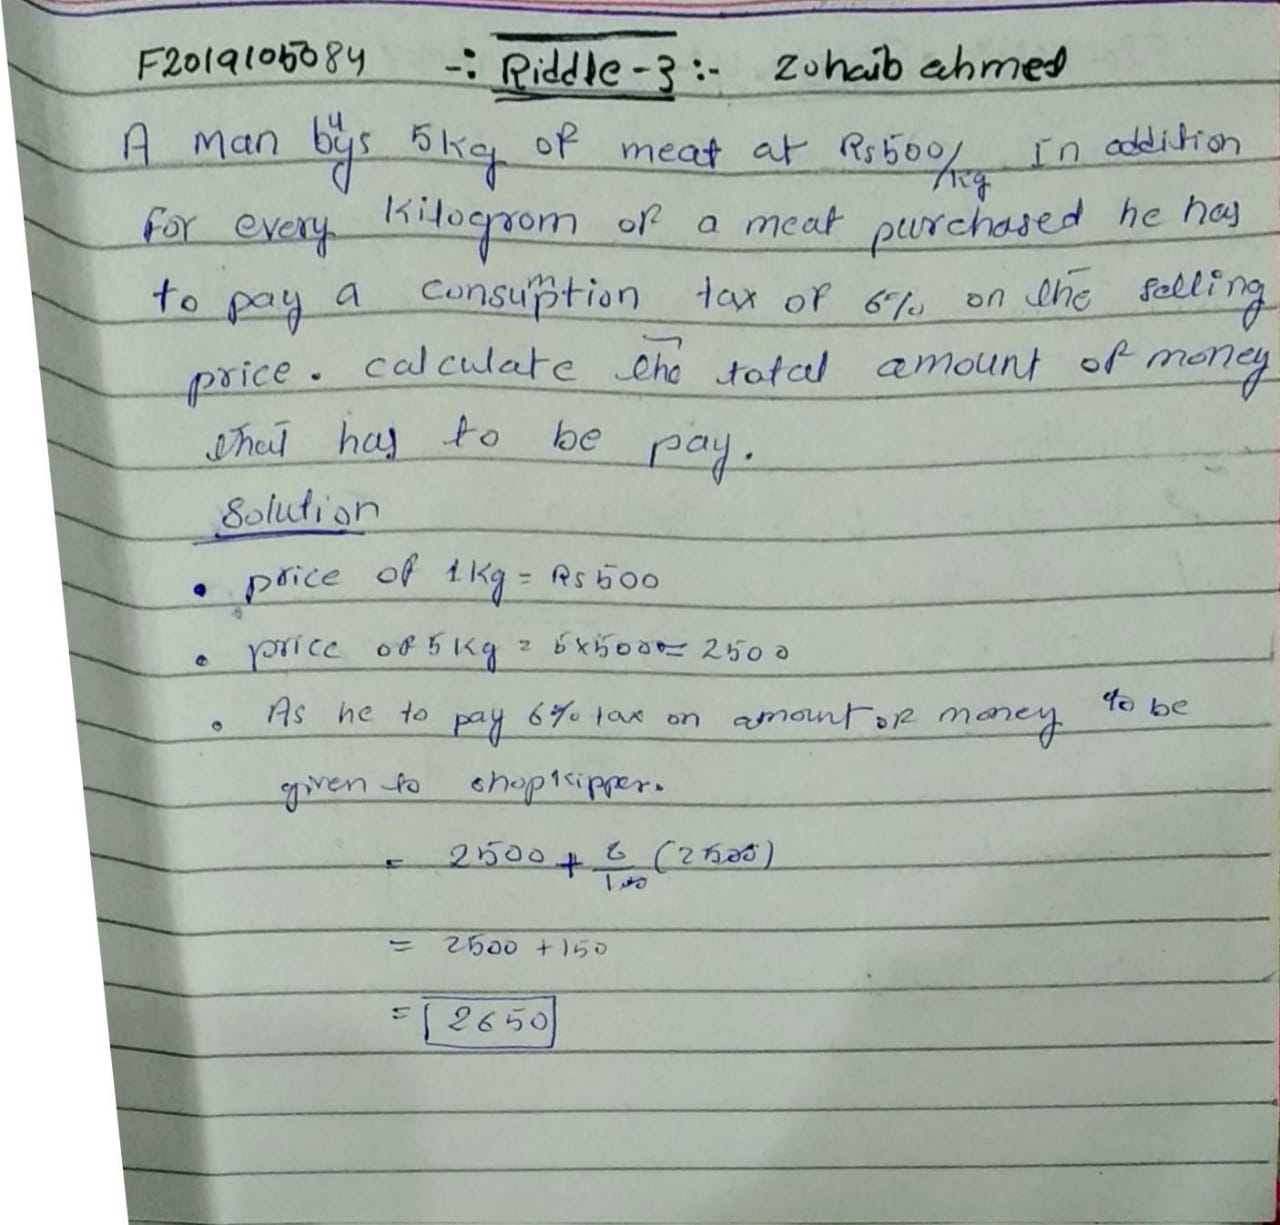 F2019105084 -: Riddle-3 :- Zohaib ahmed
A man buys 5kg of meat at Rs500/kg In addition
for every kilogrom of a meat purchased he has
to pay a consumption tax of 6% on the selling
price. calculate the total amount of money
that has to be pay.
Solution
• price of 1Kg = Rs 500
• price of 5 Kg = 5x500= 2500
• As he to pay 6% tax on amount of money to be
given to shopkipper.
= 2500 + 6/100 (2500)
= 2500 + 150
= 2650